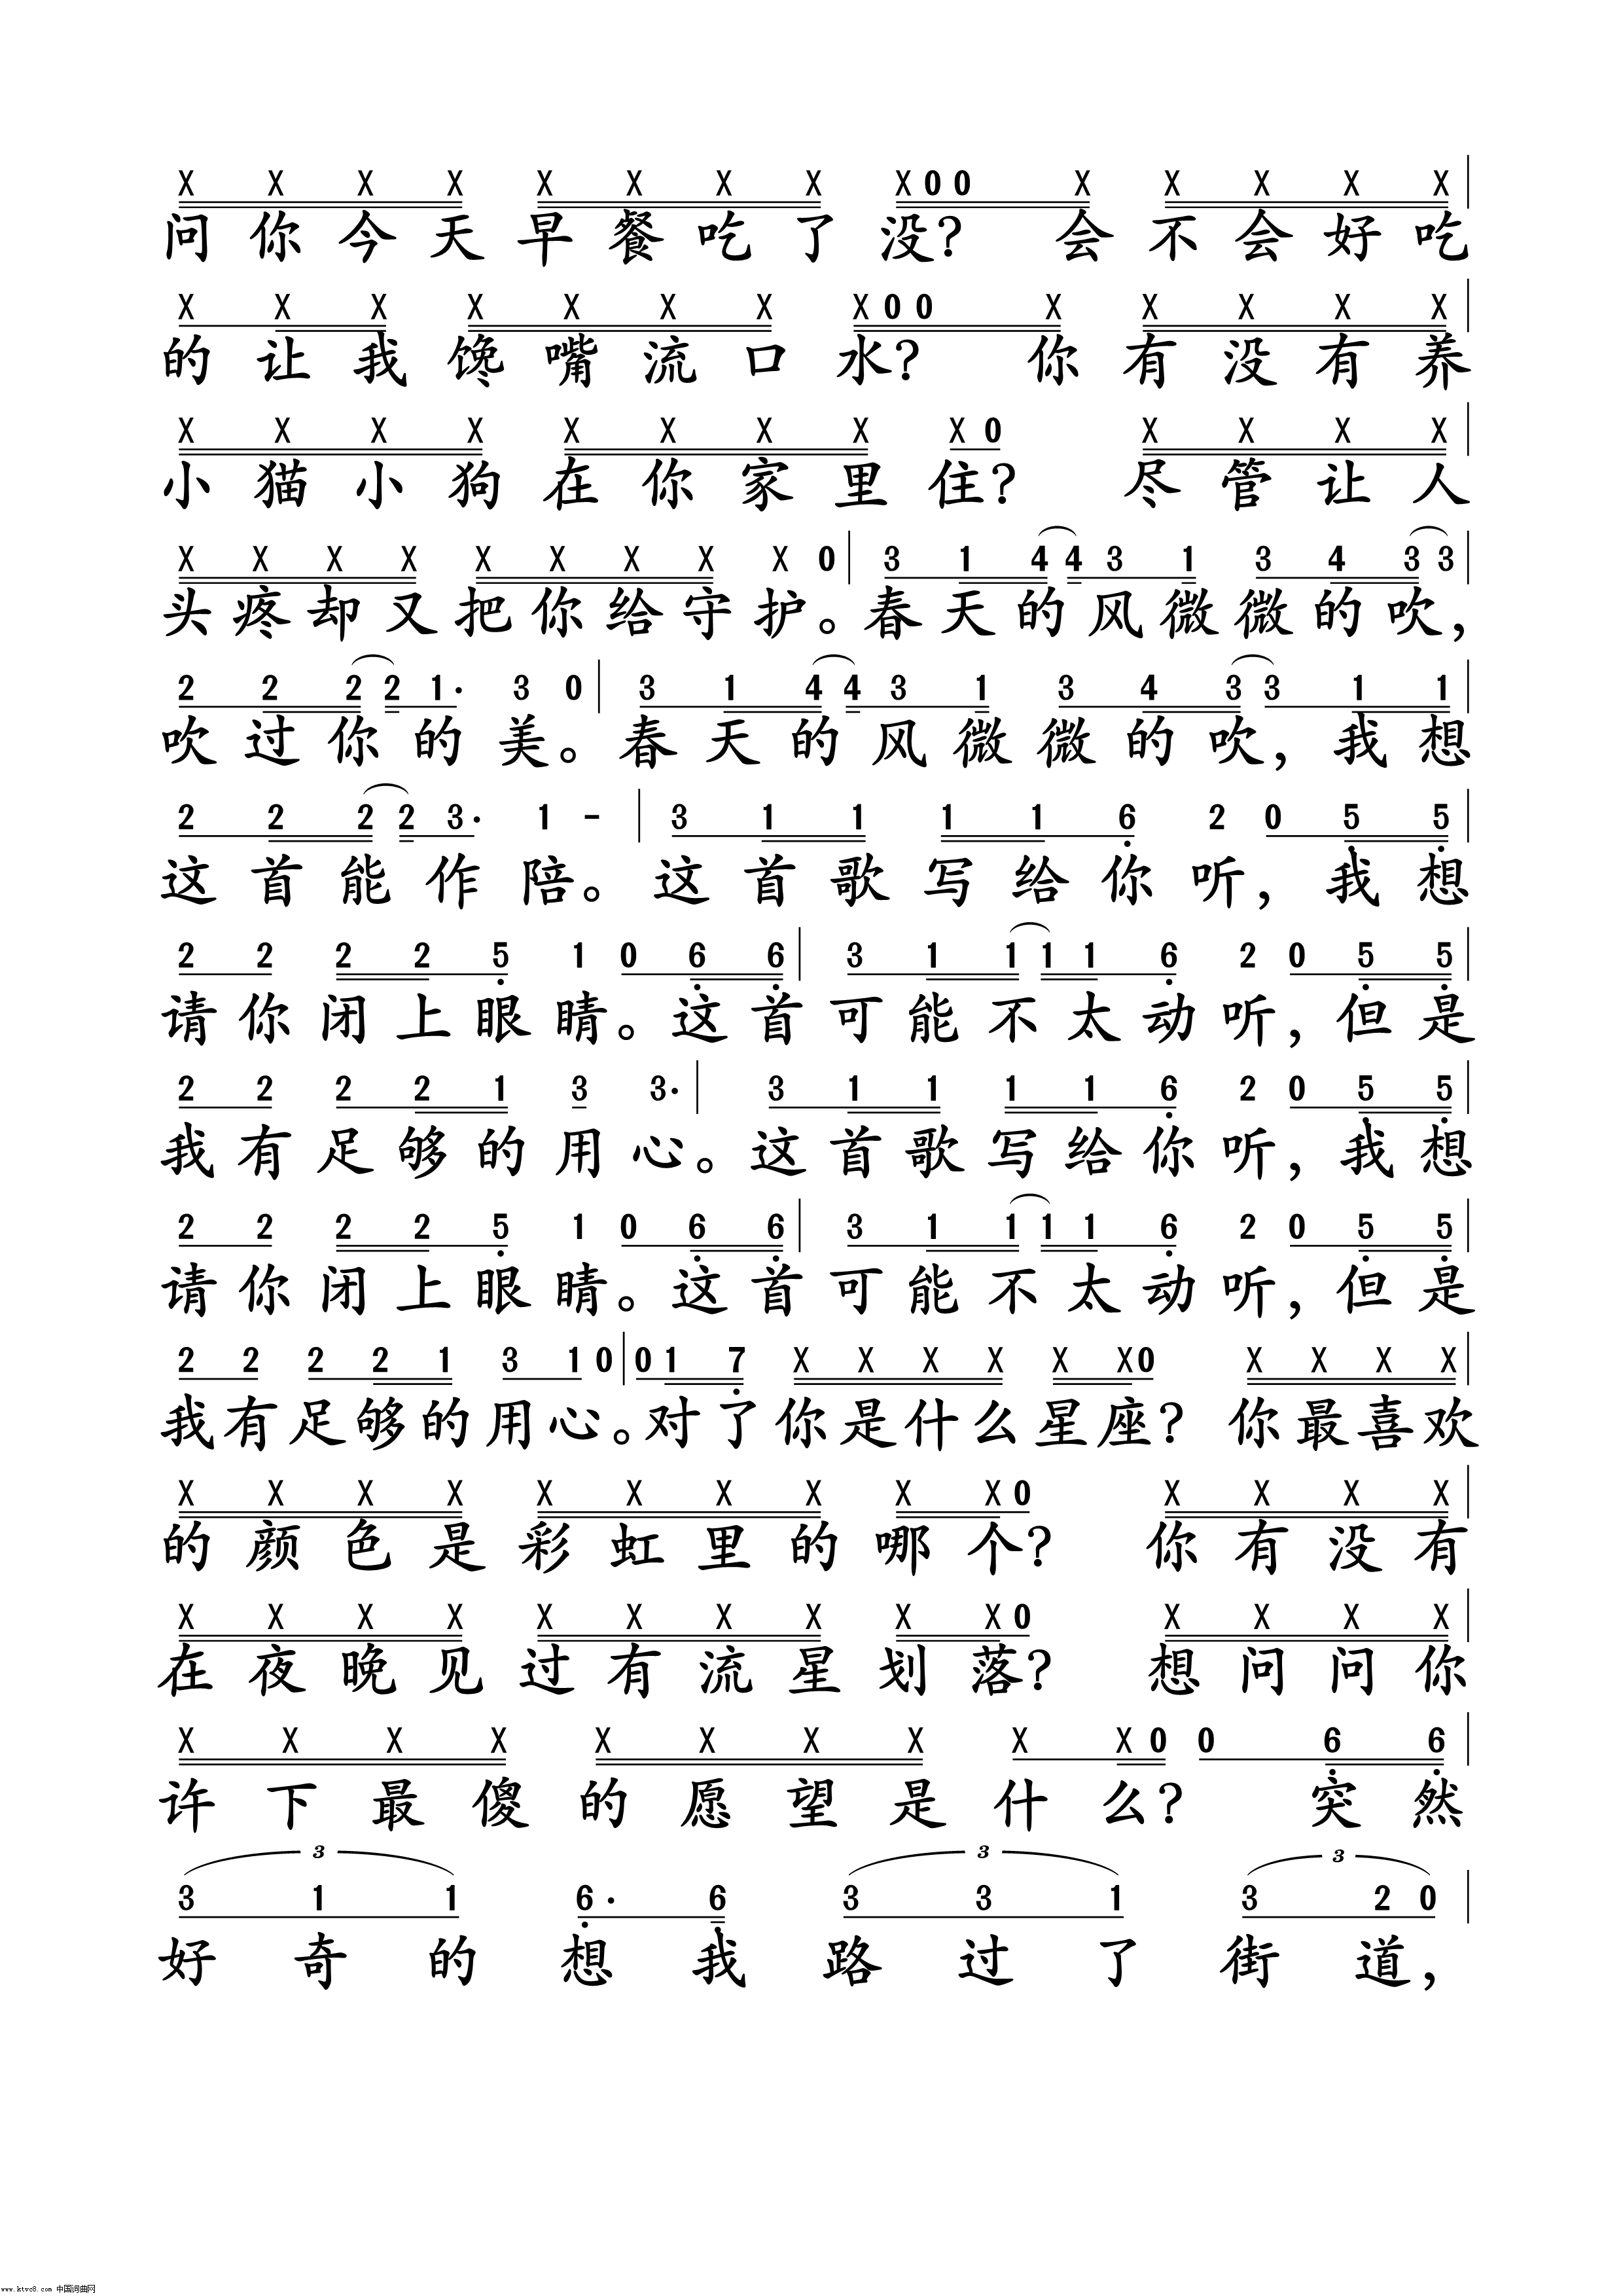 X X X X X X X X X 0 0 X X X X X
问你今天早餐吃了没？会不会好吃
X X X X X X X X 0 0 X X X X X
的让我馋嘴流口水？你有没有养
X X X X X X X X X 0 X X X X
小猫小狗在你家里住？尽管让人
X X X X X X X X X 0 | 3 1 4 4 3 1 3 4 3 3
头疼却又把你给守护。春天的风微微的吹，
2 2 2 2 1· 3 0 | 3 1 4 4 3 1 3 4 3 3 1 1
吹过你的美。春天的风微微的吹，我想
2 2 2 2 3· 1 - | 3 1 1 1 1 6 2 0 5 5
这首能作陪。这首歌写给你听，我想
2 2 2 2 5 1 0 6 6 | 3 1 1 1 1 6 2 0 5 5
请你闭上眼睛。这首可能不太动听，但是
2 2 2 2 1 3 3· | 3 1 1 1 1 6 2 0 5 5
我有足够的用心。这首歌写给你听，我想
2 2 2 2 5 1 0 6 6 | 3 1 1 1 1 6 2 0 5 5
请你闭上眼睛。这首可能不太动听，但是
2 2 2 2 1 3 1 0 | 0 1 7 X X X X X X 0 X X X X
我有足够的用心。对了你是什么星座？你最喜欢
X X X X X X X X X X 0 X X X X
的颜色是彩虹里的哪个？你有没有
X X X X X X X X X X 0 X X X X
在夜晚见过有流星划落？想问问你
X X X X X X X X X X 0 0 6 6
许下最傻的愿望是什么？突然
3 3 3
3 1 1 6· 6 3 3 1 3 2 0
好奇的想我路过了街道，
www.ktvc8.com 中国词曲网